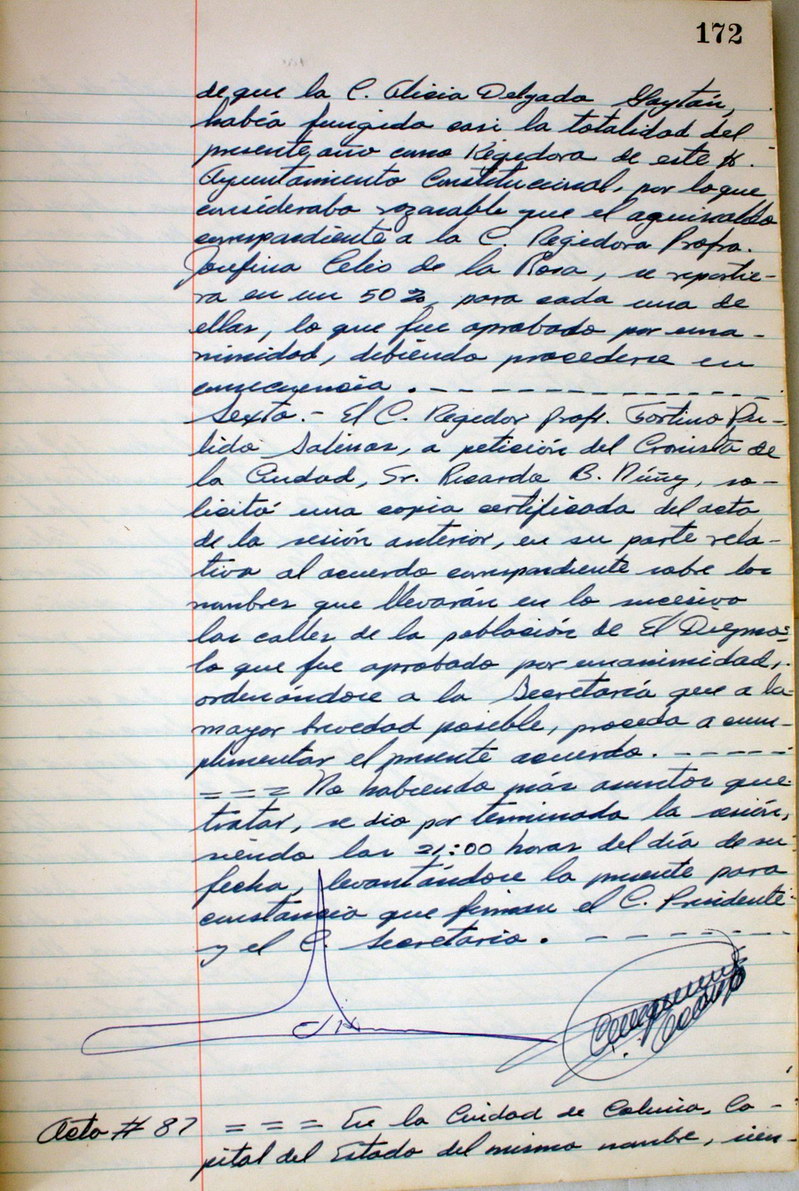 172
de que la C. Alicia Delgado Gaytán,
había fungido casi la totalidad del
presente año como Regidora de este H.
Ayuntamiento Constitucional, por lo que
consideraba rozanable que el aguinaldo
correspondiente a la C. Regidora Profra.
Josefina Celis de la Rosa, se repartie-
ra en un 50% para cada una de
ellas, lo que fue aprobado por una-
nimidad, debiendo procederse en
consecuencia . - - - - - - - - - - -
Sexto.- El C. Regidor Profr. Fortino Pu-
lido Salinas, a petición del Cronista de
la Ciudad, Sr. Ricardo B. Núñez, so-
licitó una copia certificada del acta
de la sesión anterior, en su parte rela-
tiva al acuerdo correspondiente sobre los
nombres que llevarán en lo sucesivo
las calles de la población de El Diezmo;
lo que fue aprobado por unanimidad,
ordenándose a la Secretaría que a la
mayor brevedad posible, proceda a cum-
plimentar el presente acuerdo. - - - - -
= = = No habiendo más asuntos que
tratar, se dio por terminada la sesión,
siendo las 21:00 horas del día de su
fecha, levantándose la presente para
constancia que firman el C. Presidente
y el C. Secretario. - - - - - - -
Acta # 87 = = = En la Ciudad de Colima, Ca-
pital del Estado del mismo nombre, sien-